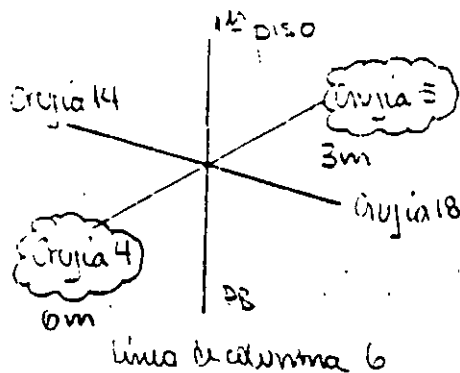 1er PISO
Crujia 14
Crujia 5
3m
Crujia 18
Crujia 4
6m
PB
Linea de columna 6